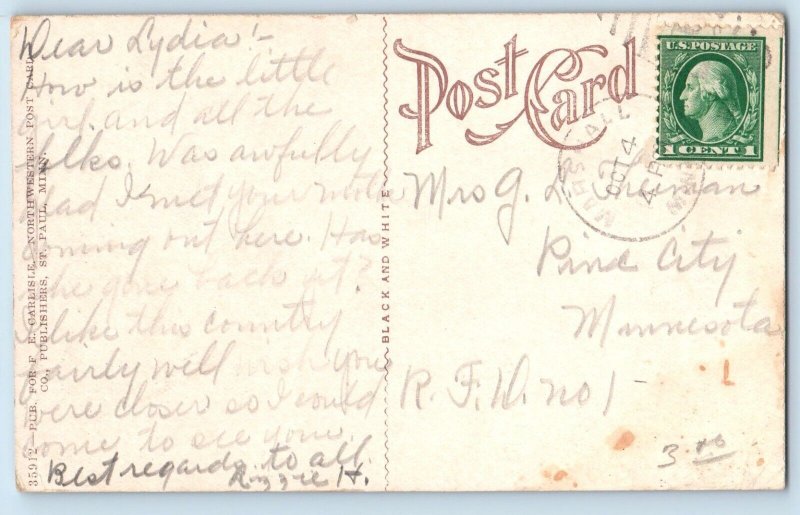 Dear Lydia!-
How is the little
girl. and all the
folks. Was awfully
glad I met your
coming out here. Has
she gone back yet?
I like this country
fairly well wish you
were closer so I could
come to see you.
Best regards to all.
H.
35912-PUB. FOR F. E. CARLISLE, NORTHWESTERN POST CARD
CO., PUBLISHERS, ST. PAUL, MINN.
BLACK AND WHITE
Post Card
U.S. POSTAGE
1 CENT 1
OCT 4
4 P
Mrs G. L.
Pine City
Minnesota
R. F. D. no 1-
3 00